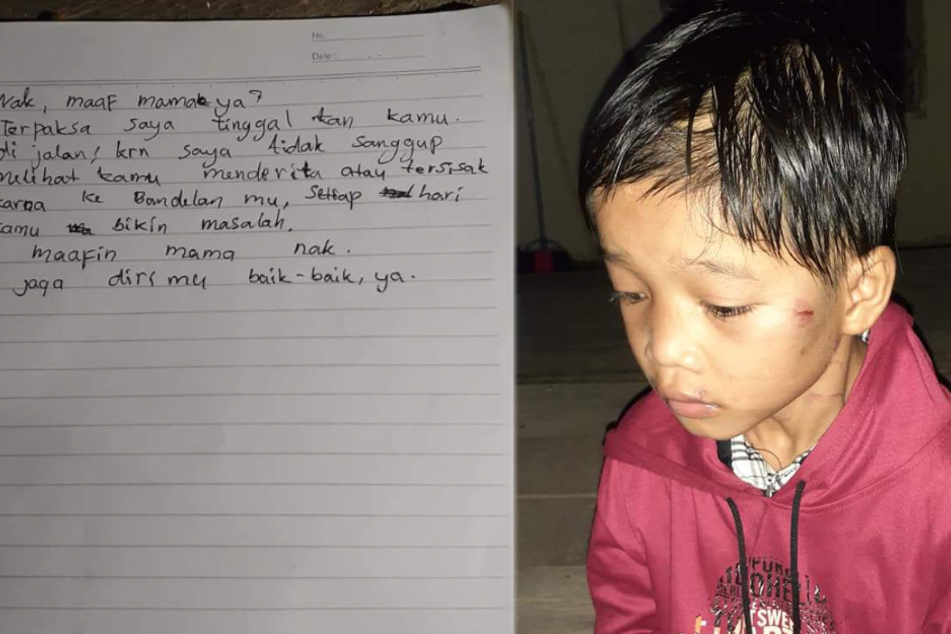 No.
Date :
Nak, maaf mamak ya?
Terpaksa saya tinggal kan kamu.
di jalan, krn saya tidak sanggup
melihat kamu menderita atau tersisak
karna ke Bandelan mu, setiap hari
kamu bikin masalah.
maafin mama nak.
jaga diri mu baik-baik, ya.
SWEET